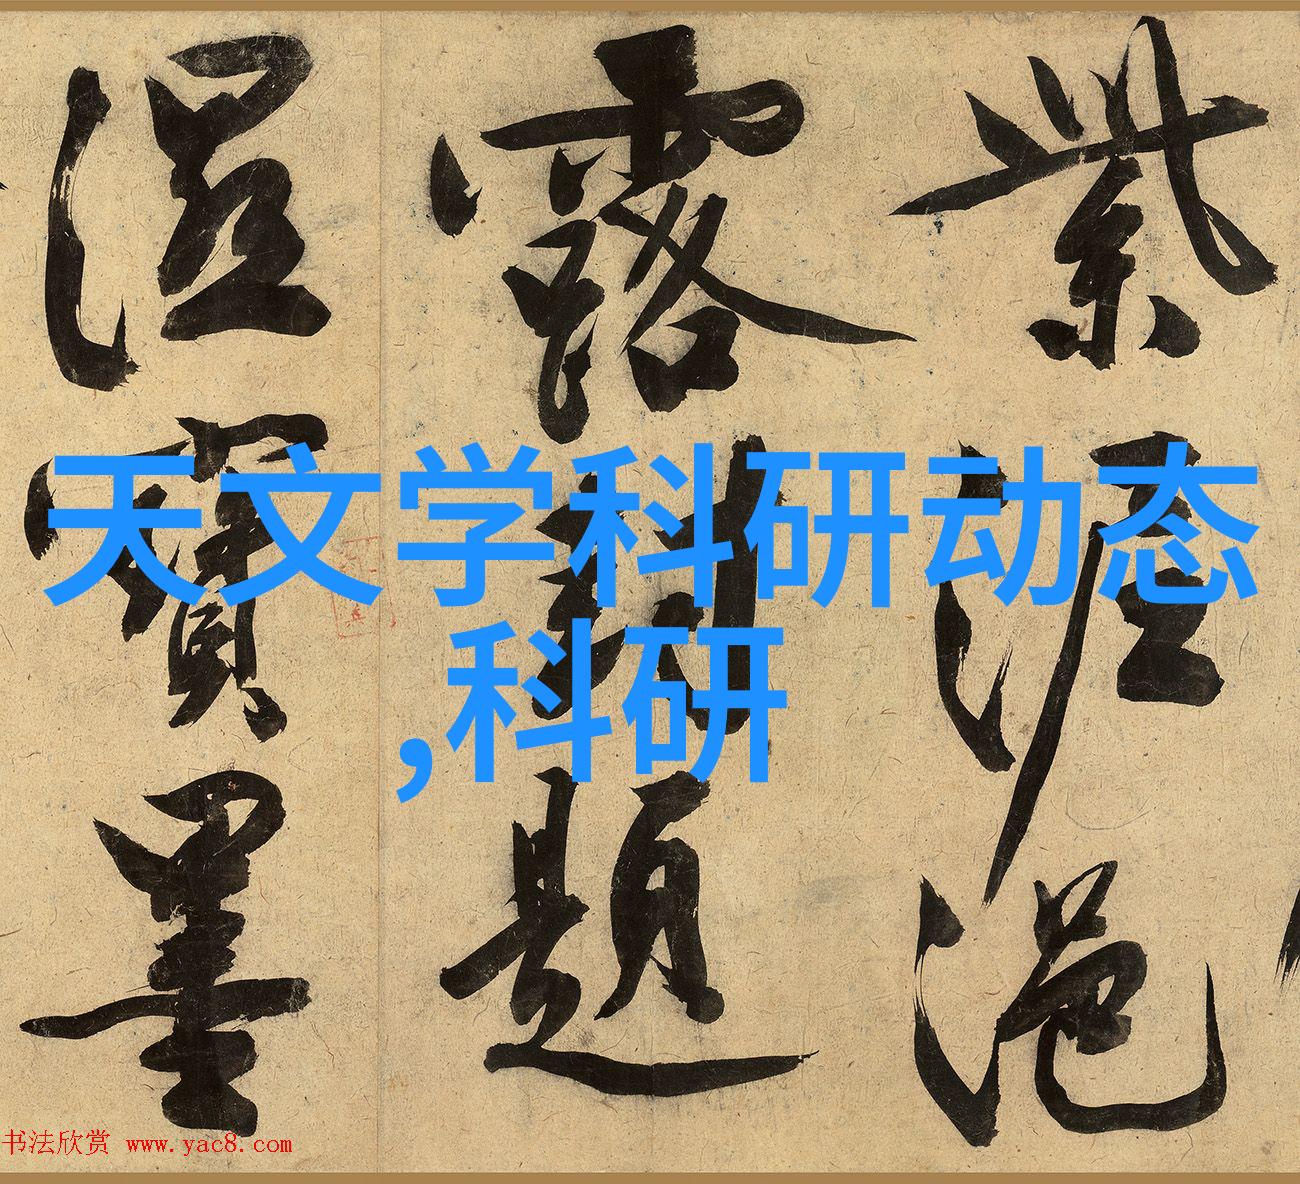 紫泥浥
露封題
濕寶墨
天文学科研动态
,科研
书法欣赏 www.yac8.com